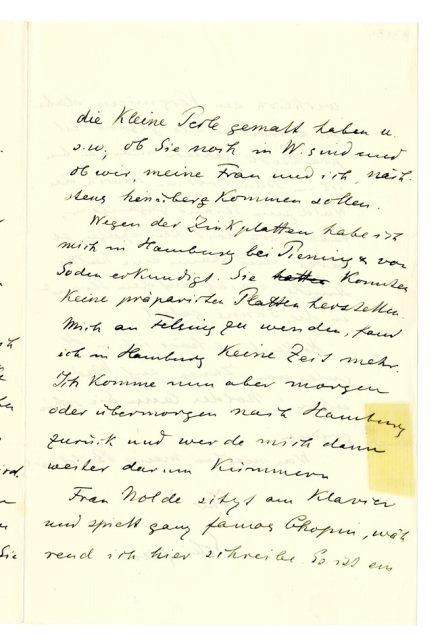 die Kleine Perle gemalt haben u.
s.w., ob Sie noch in W. sind und
ob wir, meine Frau und ich, näch-
stens herüberg Kommen sollen.
Wegen der Zinkplatten habe ich
mich in Hamburg bei & von
Soden erkundigt. Sie hatten Konnten
Keine präparirten Platten herstellen.
Mich an Felsing zu wenden, fand
ich in Hamburg Keine Zeit mehr.
Ich Komme nun aber morgen
oder übermorgen nach Hamburg
zurück und werde mich dann
weiter darum Kümmern
Frau Nolde sitzt am Klavier
und spielt ganz famos Chopin, wäh
rend ich hier schreibe. Es ist ein